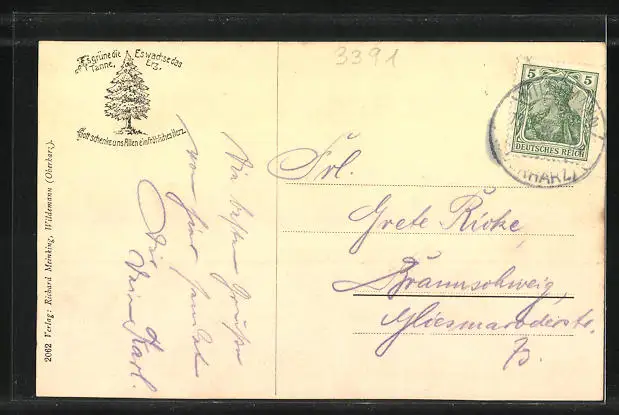 Es grüne die Tanne,
Es wachse das Erz,
Gott schenke uns Allen ein fröhliches Herz.
2062 Verlag: Richard Meinking, Wildemann (Oberharz).
3391
5 5
DEUTSCHES REICH
Frl.
Grete Ricke
Braunschweig,
Gliesmaroderstr.
Die besten Grüße
von hier sendet
Dir
Dein Karl.